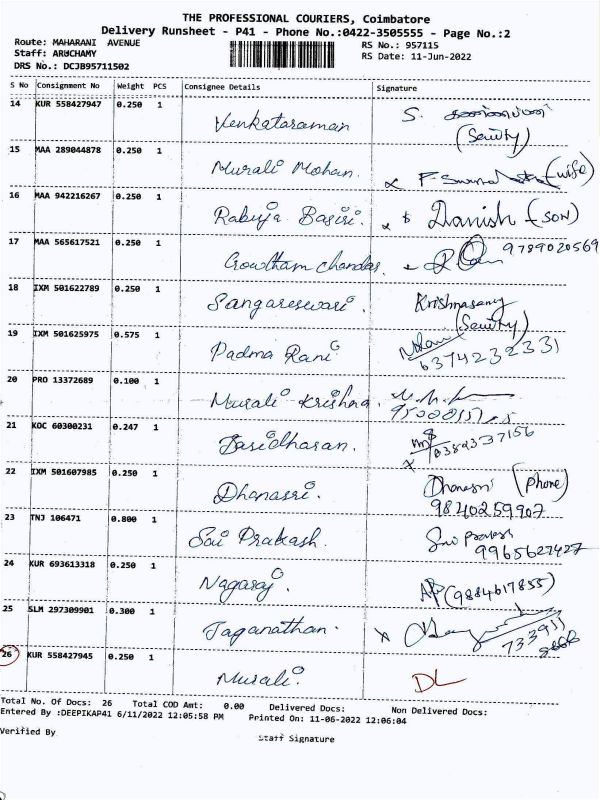 THE PROFESSIONAL COURIERS, Coimbatore
Delivery Runsheet - P41 - Phone No.:0422-3505555 - Page No.:2
Route: MAHARANI AVENUE
RS No.: 957115
Staff: ARUCHAMY
RS Date: 11-Jun-2022
DRS No.: DCJB95711502
S No Consignment No Weight PCS Consignee Details Signature
14 KUR 558427947 0.250 1
Venkataraman S.
(Security)
15 MAA 289044878 0.250 1
Murali Mohan. (wife)
16 MAA 942216267 0.250 1
Rabiya Basiri. Danish (SON)
17 MAA 565617521 0.250 1
Gowtham chandar. 9789020569
18 IXM 501622789 0.250 1
Sangareswari. Krishnasamy
(Security)
19 IXM 501625975 0.575 1
Padma Rani 6374232331
20 PRO 13372689 0.100 1
Murali Krishna.
21 KOC 60300231 0.247 1
Sasidharan.
22 IXM 501607985 0.250 1
Dhanasri. Dhanasri (Phone)
9840259907
23 TNJ 106471 0.800 1
Sai Prakash. Sai Prakash
9965627427
24 KUR 693613318 0.250 1
Nagaraj. (9884617855)
25 SLM 297309901 0.300 1
Jaganathan.
26 KUR 558427945 0.250 1
Murali. DL
Total No. Of Docs: 26 Total COD Amt: 0.00 Delivered Docs: Non Delivered Docs:
Entered By :DEEPIKAP41 6/11/2022 12:05:58 PM Printed On: 11-06-2022 12:06:04
Verified By
Staff Signature